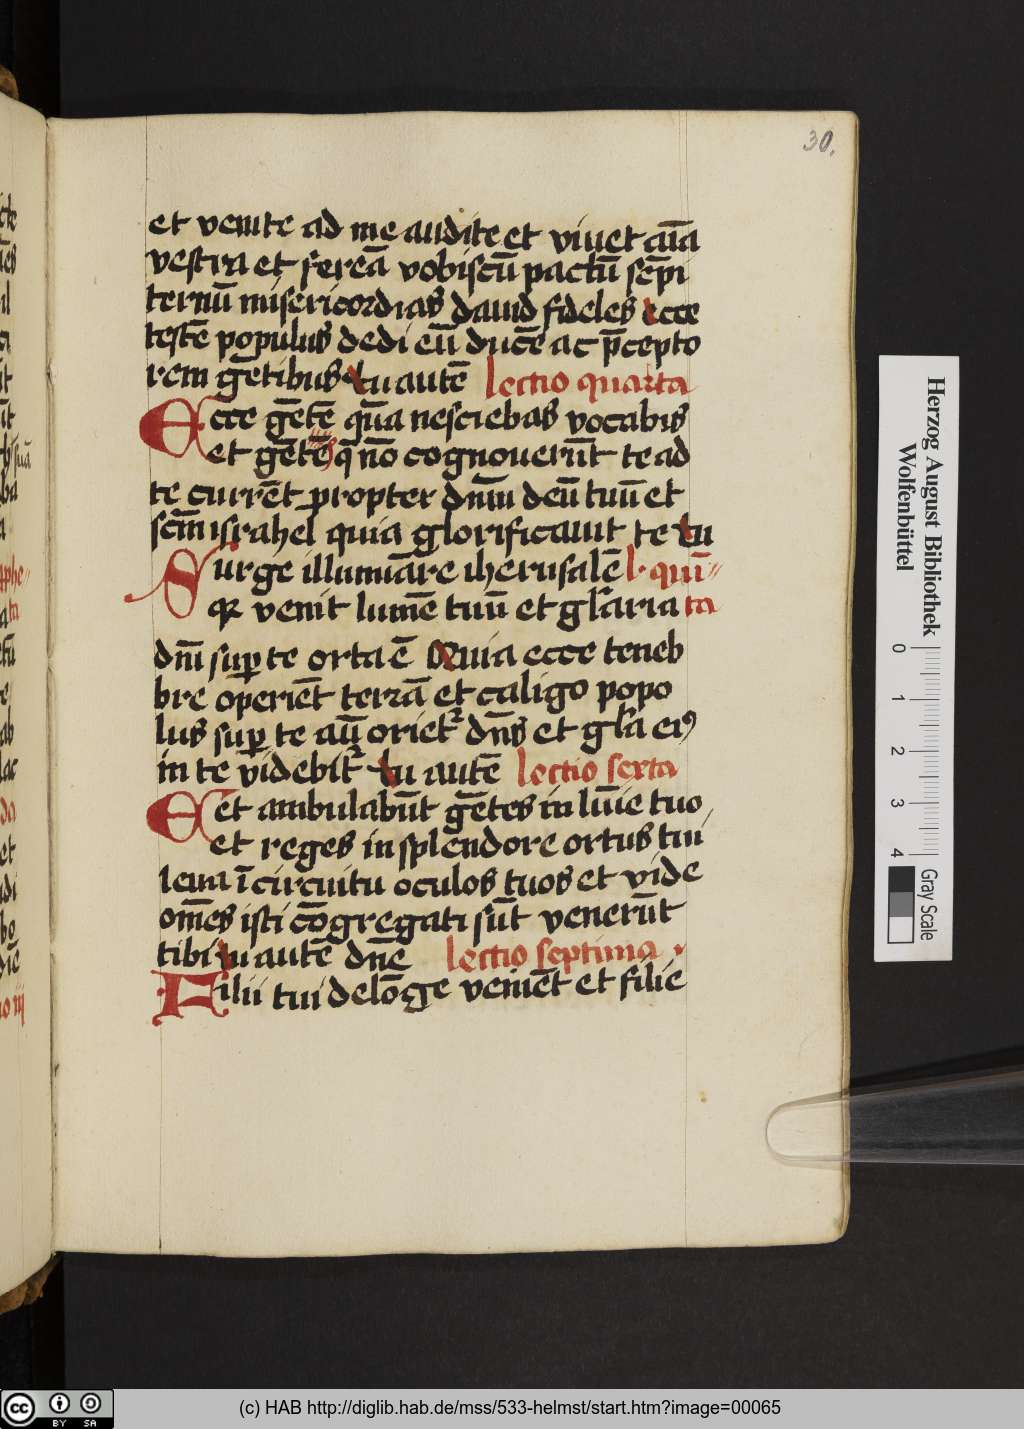 30.
et venite ad me audite et viuet aīa
vestra et fereā vobiscū pactū sēpi
ternū misericordias dauid fideles ecce
testē populus dedi eū ducē ac p̄cepto
rem gētibus tu autē lectio quarta
Ecce gētē quā nesciebas vocabis
et gētes q̄ nō cognouerūt te ad
te currēt propter dnm̄ deū tuū et
scm̄ israhel quia glorificauit te tu
Surge illumīare iherusalē l. quī
qꝛ venit lumē tuū et glaria ta
dnī suꝑ te orta ē Quia ecce teneb
bre operiēt terrā et caligo popo
lus suꝑ te aū orietᷣ dn̄s et gl̄a eiꝰ
in te videbitᷣ tu autē lectio sexta
Eet ambulabūt gētes in lūīe tuo
et reges in splendore ortus tui
leua ī circuitu oculos tuos et vide
om̄es isti cōgregati sūt venerūt
tibi tu autē dn̄e lectio septima
Filii tui de lōge veniēt et filie
Herzog August Bibliothek
Wolfenbüttel
0 1 2 3 4
Gray Scale
cc BY SA
(c) HAB http://diglib.hab.de/mss/533-helmst/start.htm?image=00065